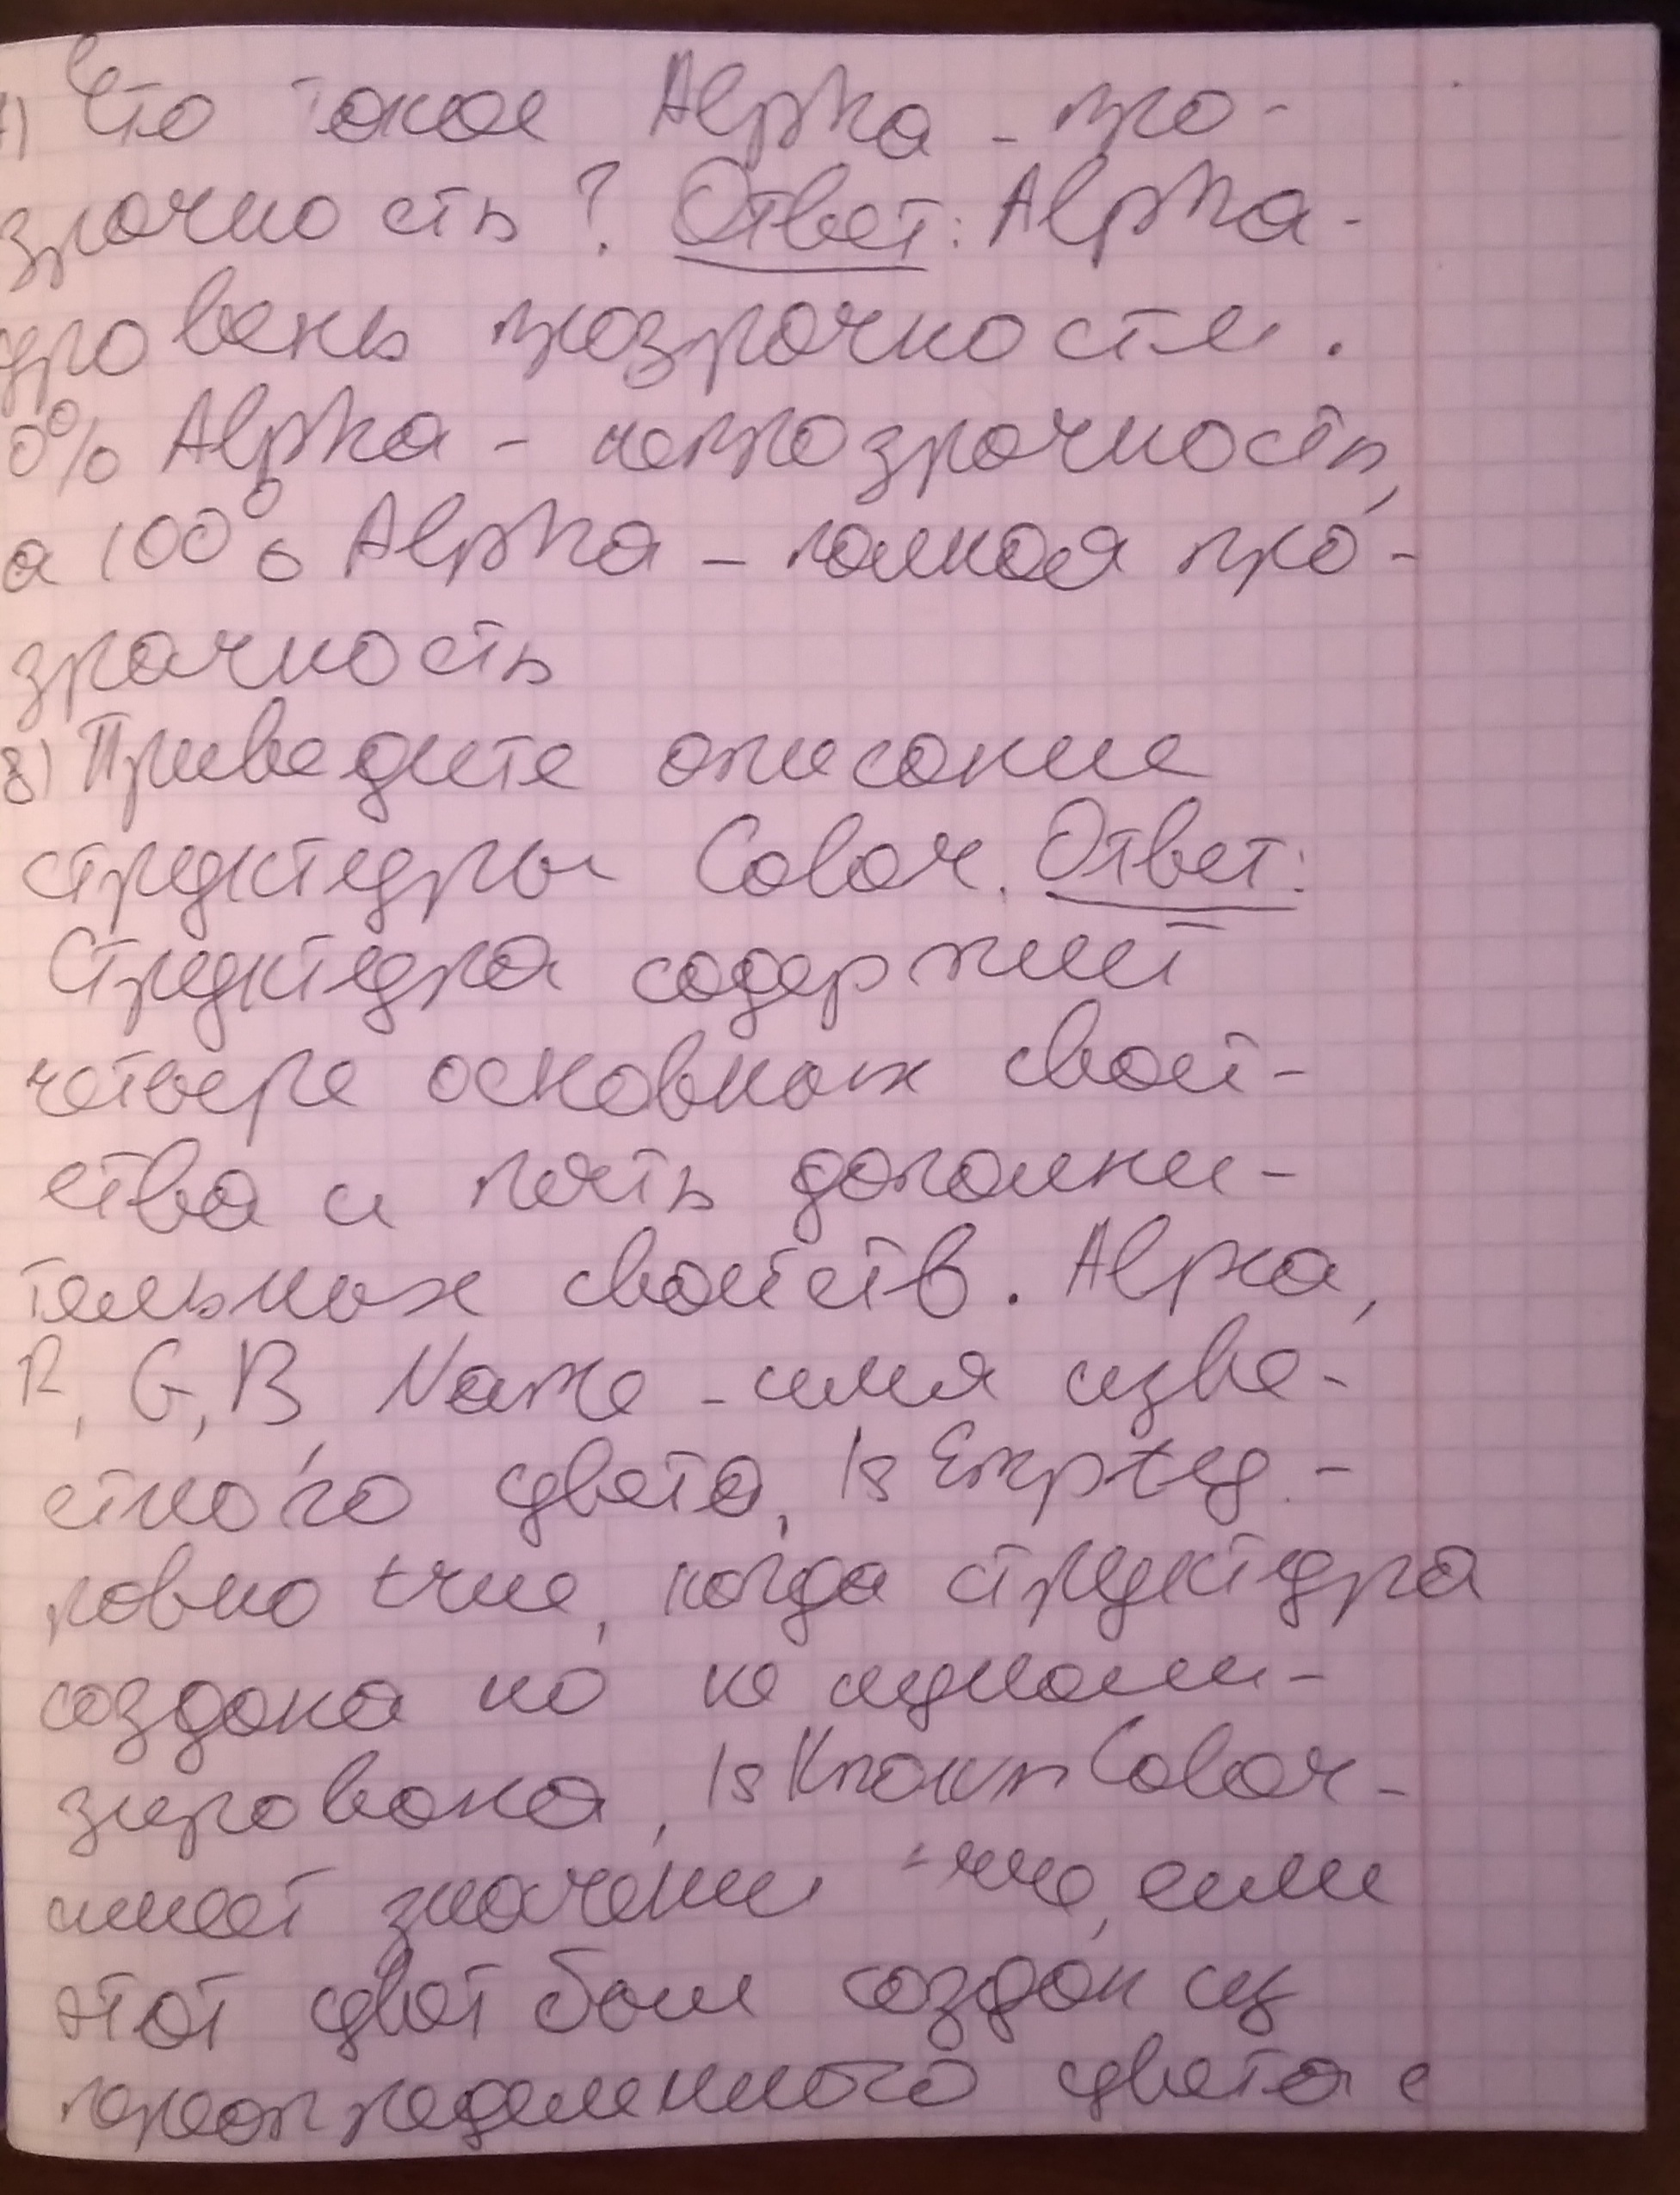 7) Что такое Alpha - про-
зрочность? Ответ: Alpha -
уровень прозрочности.
0% Alpha - непрозрочность,
а 100% Alpha - полная про-
зрачность
8) Приведите описание
структуры Color. Ответ:
Структура содержит
четыре основных свой-
ства и пять дополни-
тельных свойств. Alpha,
R, G, B, Name - имя изве-
стного цвета, IsEmpty -
ровно true, когда структура
создана но не
зирована, IsKnownColor -
имеет значени true, если
этот цвет был создан из
цвета с